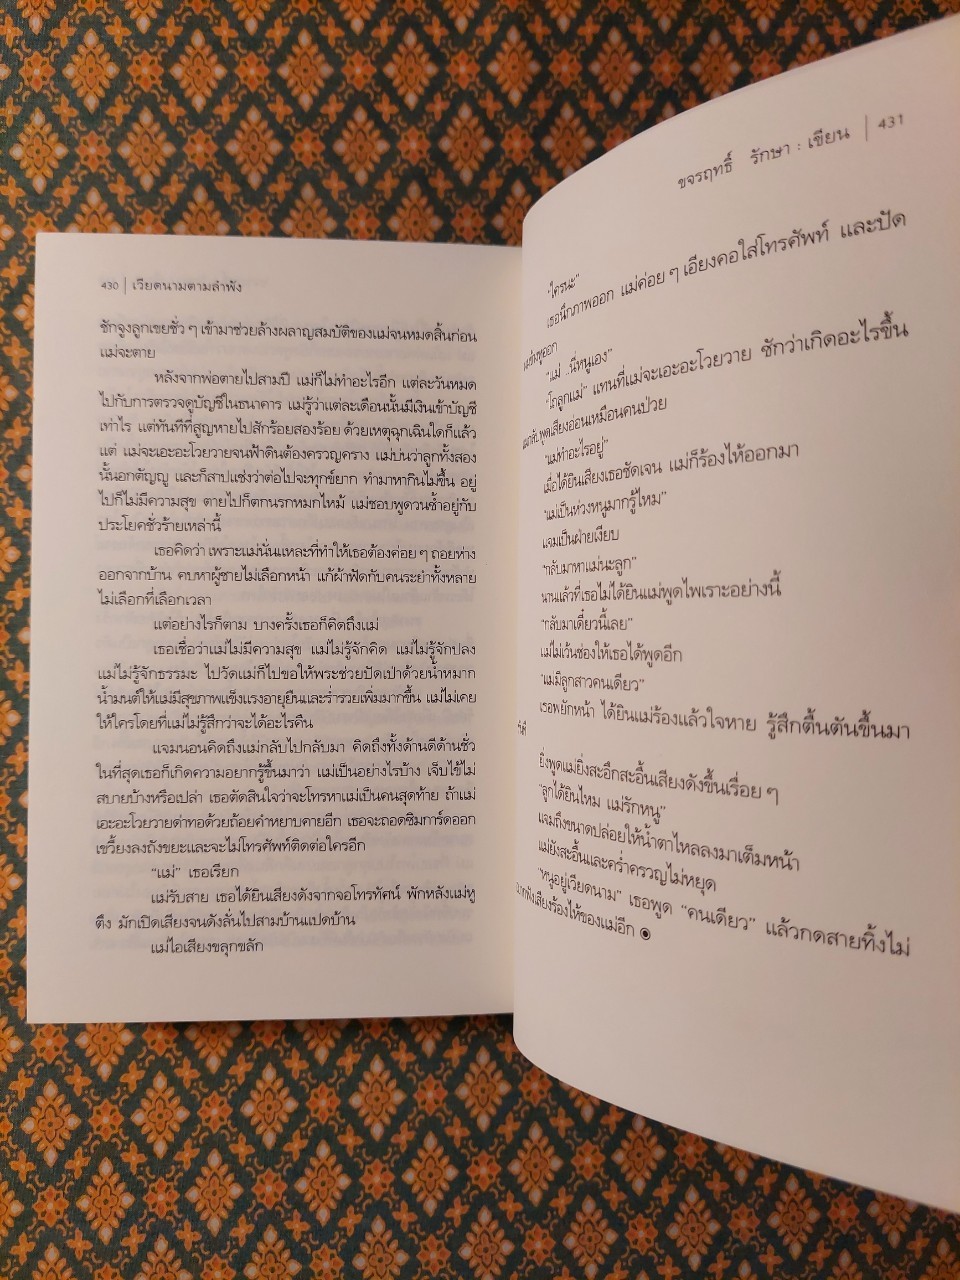 430 | เวียดนามตามลำพัง
ชักจูงลูกเขยชั่ว ๆ เข้ามาช่วยล้างผลาญสมบัติของแม่จนหมดสิ้นก่อน
แม่จะตาย
หลังจากพ่อตายไปสามปี แม่ก็ไม่ทำอะไรอีก แต่ละวันหมด
ไปกับการตรวจดูบัญชีในธนาคาร แม่รู้ว่าแต่ละเดือนนั้นมีเงินเข้าบัญชี
เท่าไร แต่ทันทีที่สูญหายไปสักร้อยสองร้อย ด้วยเหตุฉุกเฉินใดก็แล้ว
แต่ แม่จะเอะอะโวยวายจนฟ้าดินต้องครวญคราง แม่บ่นว่าลูกทั้งสอง
นั้นอกตัญญู และก็สาปแช่งว่าต่อไปจะทุกข์ยาก ทำมาหากินไม่ขึ้น อยู่
ไปก็ไม่มีความสุข ตายไปก็ตกนรกหมกไหม้ แม่ชอบพูดวนซ้ำอยู่กับ
ประโยคชั่วร้ายเหล่านี้
เธอคิดว่า เพราะแม่นั่นแหละที่ทำให้เธอต้องค่อย ๆ ถอยห่าง
ออกจากบ้าน คบหาผู้ชายไม่เลือกหน้า แก้ผ้าฟัดกับคนระยำทั้งหลาย
ไม่เลือกที่เลือกเวลา
แต่อย่างไรก็ตาม บางครั้งเธอก็คิดถึงแม่
เธอเชื่อว่าแม่ไม่มีความสุข แม่ไม่รู้จักคิด แม่ไม่รู้จักปลง
แม่ไม่รู้จักธรรมะ ไปวัดแม่ก็ไปขอให้พระช่วยปัดเป่าด้วยน้ำหมาก
น้ำมนต์ให้แม่มีสุขภาพแข็งแรงอายุยืนและร่ำรวยเพิ่มมากขึ้น แม่ไม่เคย
ให้ใครโดยที่แม่ไม่รู้สึกว่าจะได้อะไรคืน
แจมนอนคิดถึงแม่กลับไปกลับมา คิดถึงทั้งด้านดีด้านชั่ว
ในที่สุดเธอก็เกิดความอยากรู้ขึ้นมาว่า แม่เป็นอย่างไรบ้าง เจ็บไข้ไม่
สบายบ้างหรือเปล่า เธอตัดสินใจว่าจะโทรหาแม่เป็นคนสุดท้าย ถ้าแม่
เอะอะโวยวายด่าทอด้วยถ้อยคำหยาบคายอีก เธอจะถอดซิมการ์ดออก
เขวี้ยงลงถังขยะและจะไม่โทรศัพท์ติดต่อใครอีก
“แม่” เธอเรียก
แม่รับสาย เธอได้ยินเสียงดังจากจอโทรทัศน์ พักหลังแม่หู
ตึง มักเปิดเสียงจนดังลั่นไปสามบ้านแปดบ้าน
แม่ไอเสียงขลุกขลัก
ขจรฤทธิ์ รักษา : เขียน | 431
“ใครนะ”
เธอนึกภาพออก แม่ค่อย ๆ เอียงคอใส่โทรศัพท์ และปัด
หูออก
“แม่ ..นี่หนูเอง”
“โถลูกแม่” แทนที่แม่จะเอะอะโวยวาย ชักว่าเกิดอะไรขึ้น
พูดเสียงอ่อนเหมือนคนป่วย
“แม่ทำอะไรอยู่”
เมื่อได้ยินเสียงเธอชัดเจน แม่ก็ร้องไห้ออกมา
“แม่เป็นห่วงหนูมากรู้ไหม”
แจมเป็นฝ่ายเงียบ
“กลับมาหาแม่นะลูก”
นานแล้วที่เธอไม่ได้ยินแม่พูดไพเราะอย่างนี้
“กลับมาเดี๋ยวนี้เลย”
แม่ไม่เว้นช่องให้เธอได้พูดอีก
“แม่มีลูกสาวคนเดียว”
เธอพยักหน้า ได้ยินแม่ร้องแล้วใจหาย รู้สึกตื้นตันขึ้นมา
ทันที
ยิ่งพูดแม่ยิ่งสะอึกสะอื้นเสียงดังขึ้นเรื่อย ๆ
“ลูกได้ยินไหม แม่รักหนู”
แจมถึงขนาดปล่อยให้น้ำตาไหลลงมาเต็มหน้า
แม่ยังสะอื้นและคร่ำครวญไม่หยุด
“หนูอยู่เวียดนาม” เธอพูด “คนเดียว” แล้วกดสายทิ้งไม่
อยากฟังเสียงร้องไห้ของแม่อีก ◉